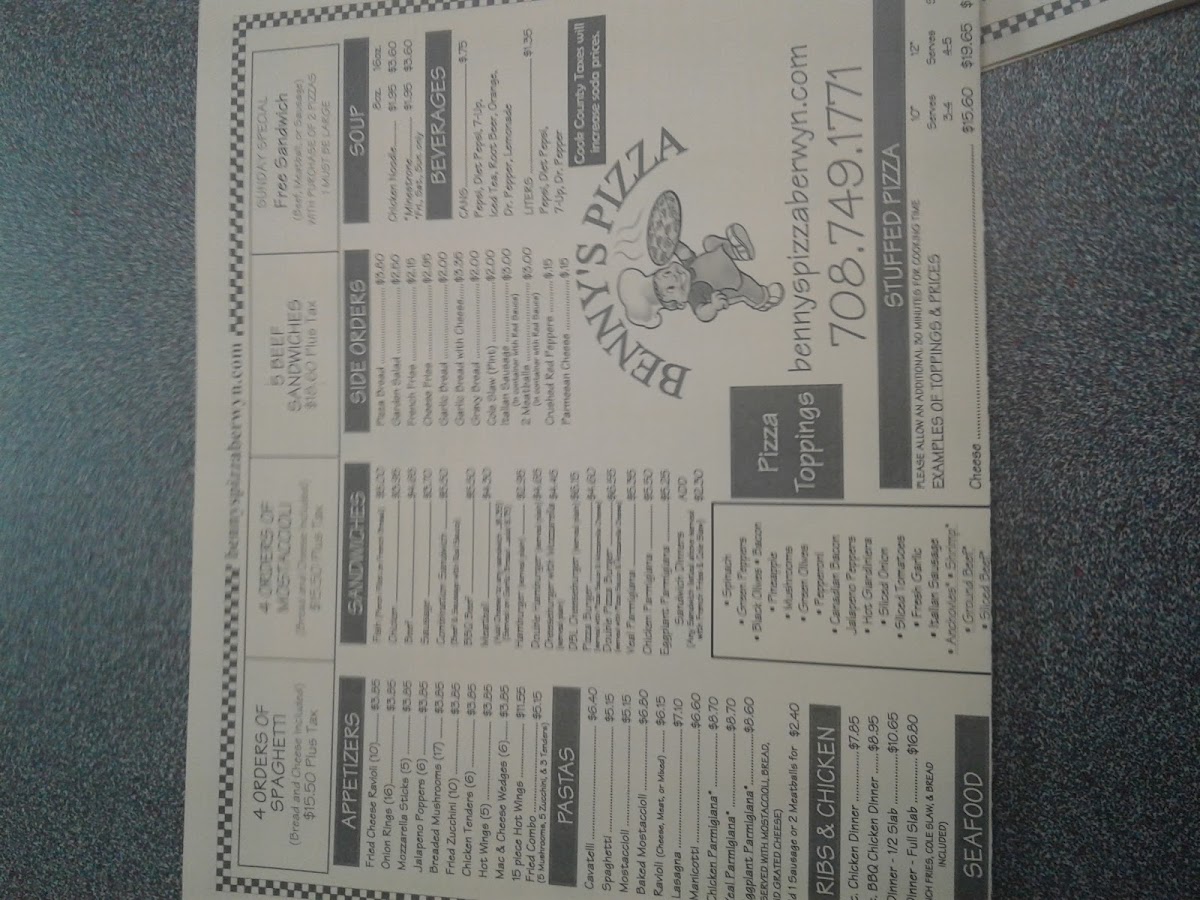 bennyspizzaberwyn.com
bennyspizzaberwyn.com
4 ORDERS OF
SPAGHETTI
(Bread and Cheese Included)
$15.50 Plus Tax
4 ORDERS OF
MOSTACCIOLI
(Bread and Cheese Included)
$15.50 Plus Tax
5 BEEF
SANDWICHES
$18.60 Plus Tax
SUNDAY SPECIAL
Free Sandwich
(Beef, Meatball, or Sausage)
WITH PURCHASE OF 2 PIZZAS
1 MUST BE LARGE
APPETIZERS
Fried Cheese Ravioli (10) $3.85
Onion Rings (16) $3.85
Mozzarella Sticks (5) $3.85
Jalapeno Poppers (6) $3.85
Breaded Mushrooms (17) $3.85
Fried Zucchini (10) $3.85
Chicken Tenders (6) $3.85
Hot Wings (5) $3.85
Mac & Cheese Wedges (6) $3.85
15 piece Hot Wings $11.55
Fried Combo $5.15
(5 Mushrooms, 5 Zucchini, & 3 Tenders)
PASTAS
Cavatelli $6.40
Spaghetti $5.15
Mostaccioli $5.15
Baked Mostaccioli $6.80
Ravioli (Cheese, Meat, or Mixed) $6.15
Lasagna $7.10
Manicotti $6.60
Chicken Parmigiana* $8.70
Veal Parmigiana* $8.70
ggplant Parmigiana* $8.60
SERVED WITH MOSTACCIOLI, BREAD,
D GRATED CHEESE)
d 1 Sausage or 2 Meatballs for $2.40
RIBS & CHICKEN
. Chicken Dinner $7.85
. BBQ Chicken Dinner $8.95
Dinner - 1/2 Slab $10.65
Dinner - Full Slab $16.80
CH FRIES, COLE SLAW, & BREAD
INCLUDED)
SEAFOOD
SANDWICHES
Chicken $3.95
Beef $4.85
Sausage $3.70
Combination Sandwich $5.50
BBQ Beef $5.50
Meatball $4.30
Hamburger $2.95
Double Hamburger $4.85
Cheeseburger with Mozzarella $4.45
DBL Cheeseburger $6.15
Pizza Burger $4.60
Double Pizza Burger $6.55
Veal Parmigiana $5.35
Chicken Parmigiana $5.50
Eggplant Parmigiana $5.25
Sandwich Dinners ADD
$2.30
SIDE ORDERS
Pizza Bread $3.60
Garden Salad $2.50
French Fries $2.15
Cheese Fries $2.95
Garlic Bread $2.00
Garlic Bread with Cheese $3.35
Gravy Bread $2.00
Cole Slaw (Pint) $2.00
Italian Sausage $3.00
(In container with Red Sauce)
2 Meatballs $3.00
(In container with Red Sauce)
Crushed Red Peppers $.15
Parmesan Cheese $.15
SOUP
8oz. 16oz.
Chicken Noodle $1.95 $3.60
*Minestrone $1.95 $3.60
*Fri, Sat, Sun only
BEVERAGES
CANS $.75
Pepsi, Diet Pepsi, 7-Up,
Iced Tea, Root Beer, Orange,
Dr. Pepper, Lemonade
LITERS $1.35
Pepsi, Diet Pepsi,
7-Up, Dr. Pepper
Cook County Taxes will
increase soda prices.
BENNY'S PIZZA
bennyspizzaberwyn.com
708.749.1771
Pizza
Toppings
• Spinach
• Green Peppers
• Black Olives • Bacon
• Pineapple
• Mushrooms
• Green Olives
• Pepperoni
• Canadian Bacon
Jalapeno Peppers
• Hot Giardiniera
• Sliced Onion
• Sliced Tomatoes
• Fresh Garlic
• Italian Sausage
• Anchovies* • Shrimp*
• Ground Beef*
• Sliced Beef*
STUFFED PIZZA
PLEASE ALLOW AN ADDITIONAL 30 MINUTES FOR COOKING TIME
EXAMPLES OF TOPPINGS & PRICES
10" 12"
Serves Serves
3-4 4-5
Cheese $15.60 $19.65